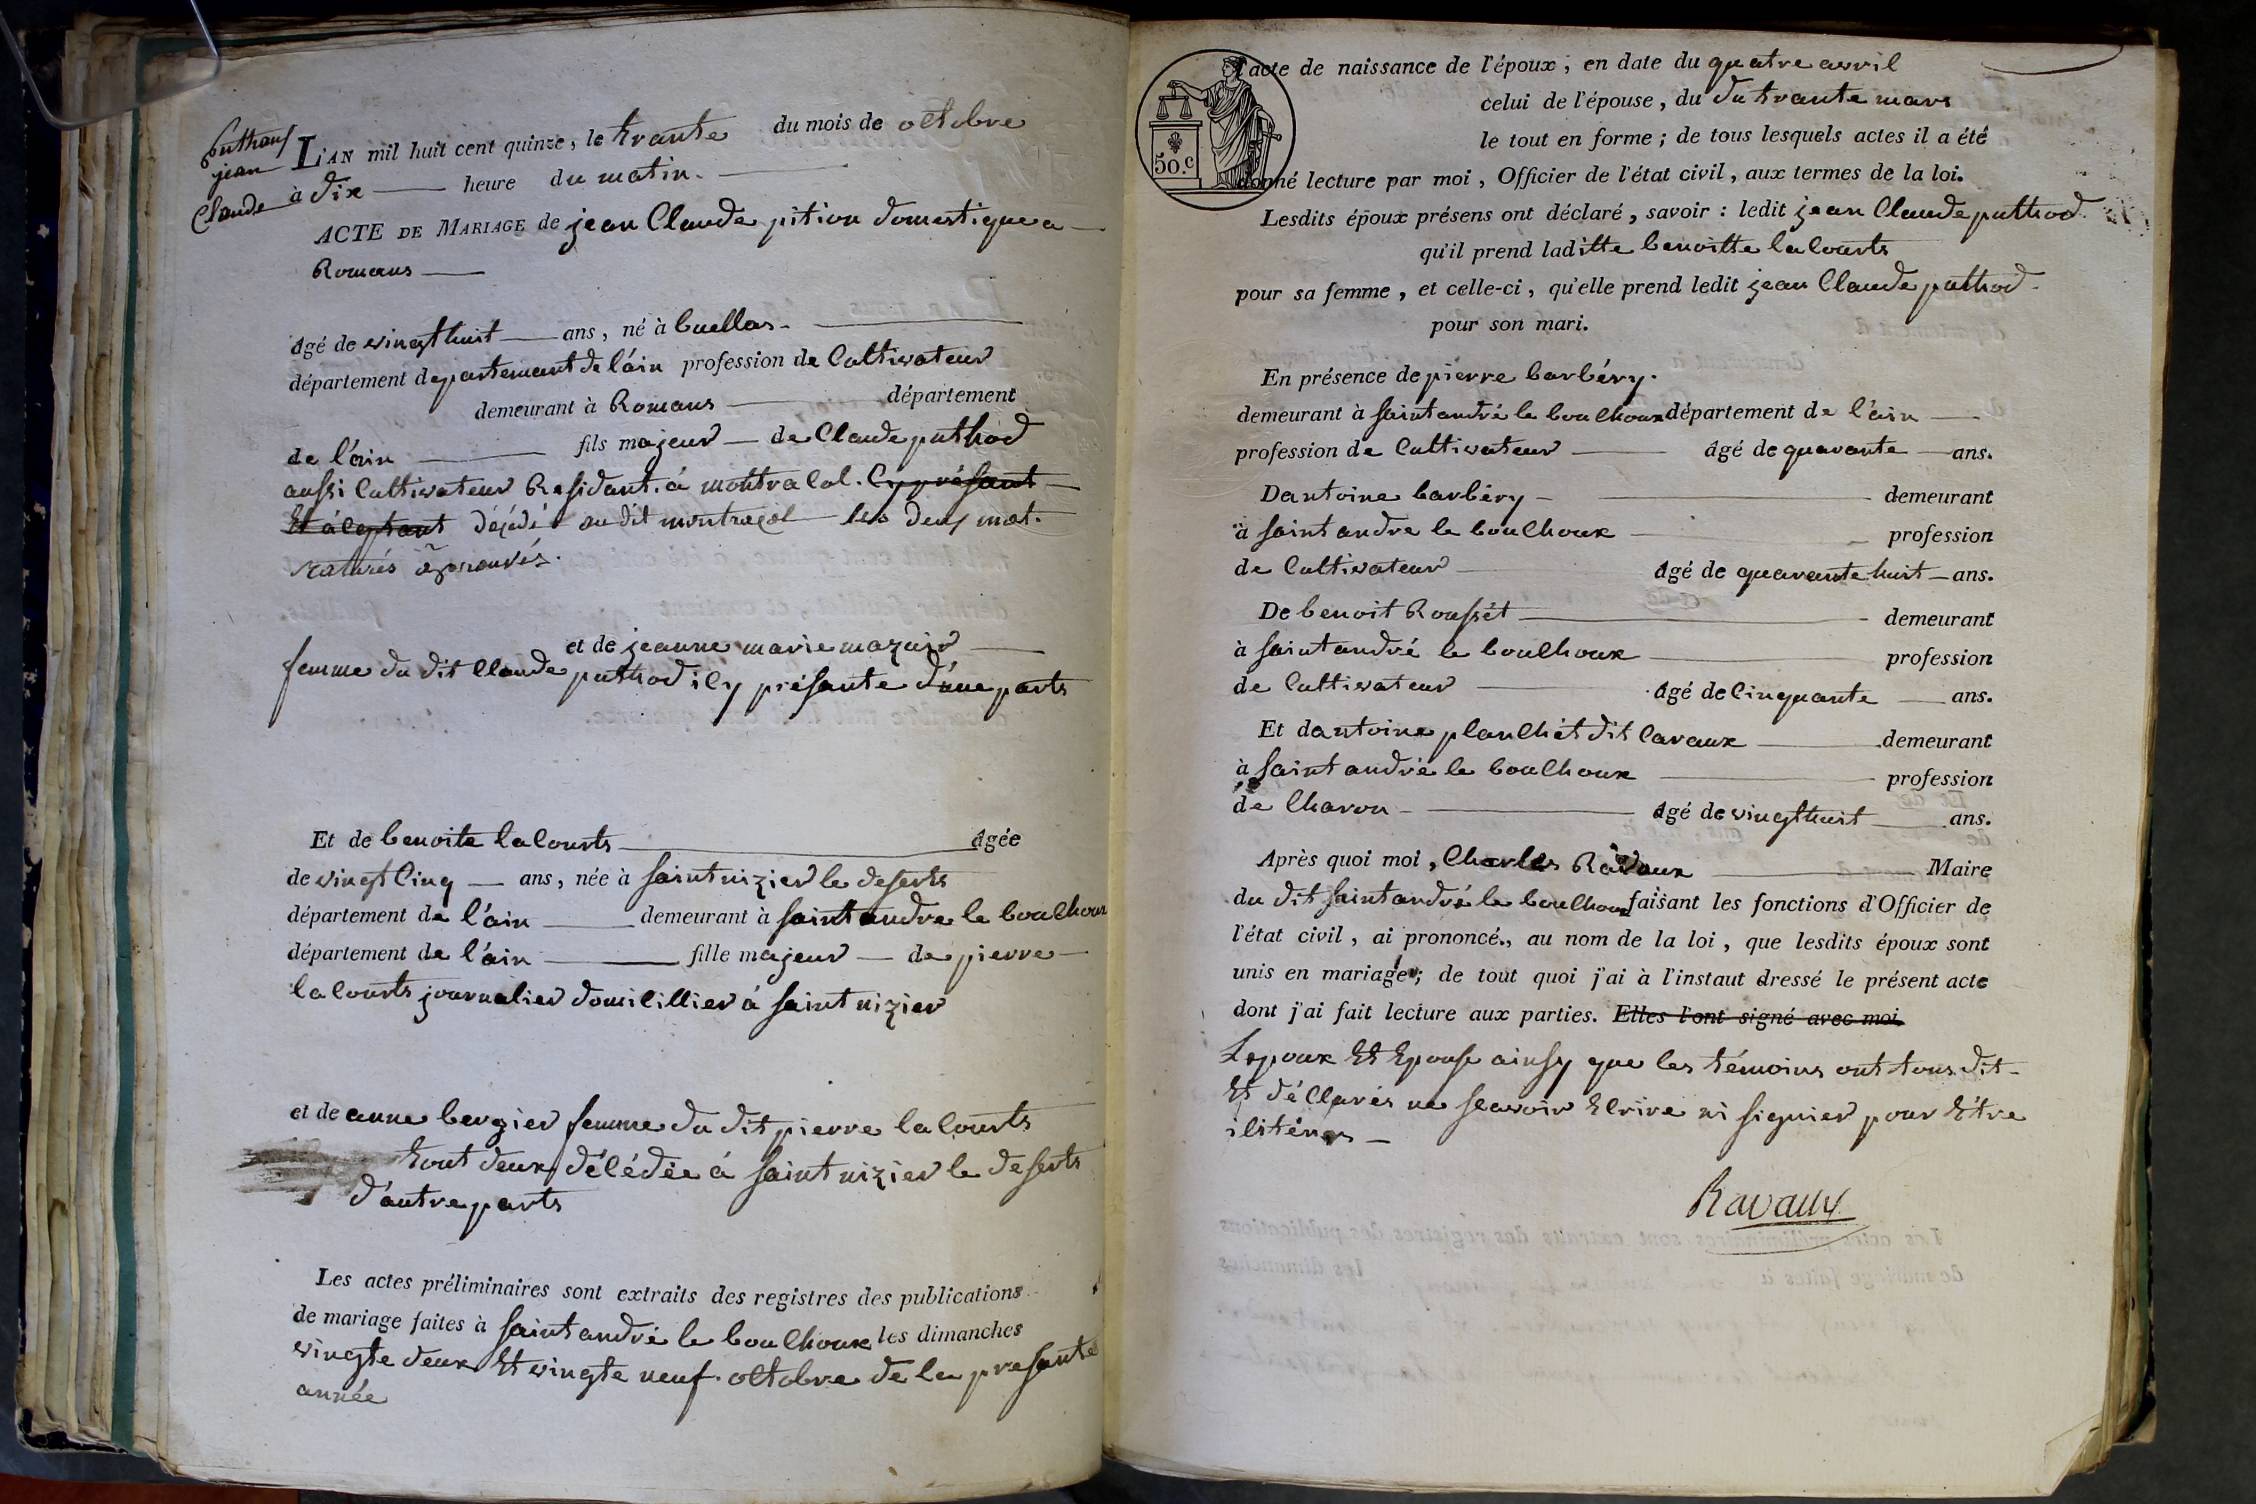 puthauf
jean
Claude
L'AN mil huit cent quinze, le trante du mois de octobre
à dix heure du matin.
ACTE DE MARIAGE de jean Claude pition domestique a
Romans
Agé de vingthuit ans, né à buellas
département departemant de l'áin profession de Cultivateur
demeurant à Romans département
de l'áin fils majeur de Claude puthod
aussi Cultivateur Residant. á montracol. Cy présant
Et áceptant déjédé au dit montracol les deux mot.
raturés aprouvés.
et de jeanne marie mazuir
femme du dit Claude puthod icy présante d'une parts
Et de benoite laCourts Agée
de vingt Cinq ans, née à saint nizier le deserts
département de l'áin demeurant à saint andre le bouchoux
département de l'áin fille majeur de pierre
laCourts journalier domicillier á saint nizier
et de anne bergier femme du dit pierre laCourts
tout deux décédée á saint nizier le deserts
d'autre parts
Les actes préliminaires sont extraits des registres des publications
de mariage faites à saint andré le bouchoux les dimanches
vingte deux Et vingte neuf octobre de la presante
année
50.c
l'acte de naissance de l'époux; en date du quatre avril
celui de l'épouse, du du trante mars
le tout en forme; de tous lesquels actes il a été
donné lecture par moi, Officier de l'état civil, aux termes de la loi.
Lesdits époux présens ont déclaré, savoir: ledit jean Claude puthod
qu'il prend laditte benoitte laCourts
pour sa femme, et celle-ci, qu'elle prend ledit jean Claude puthod
pour son mari.
En présence de pierre barbéry.
demeurant à saint andré le bouchoux département de l'áin
profession de Cultivateur Agé de quarante ans.
Dantoine barbéry demeurant
à saint andre le bouchoux profession
de Cultivateur Agé de quarante huit ans.
De benoit Roussét demeurant
à saint andré le bouchoux profession
de Cultivateur Agé de Cinquante ans.
Et dantoine planchét dit Cavaux demeurant
à saint andré le bouchoux profession
de Charon Agé de vingthuit ans.
Après quoi moi, Charles Ravaux Maire
du dit saint andré le bouchoux faisant les fonctions d'Officier de
l'état civil, ai prononcé, au nom de la loi, que lesdits époux sont
unis en mariage; de tout quoi j'ai à l'instant dressé le présent acte
dont j'ai fait lecture aux parties. Elles l'ont signé avec moi.
Lepoux Et Epouse ainsy que les témoins ont tous dit
Et déClarés ne scavoir Ecrire ni signier pour Etre
ilitérés
Ravaux